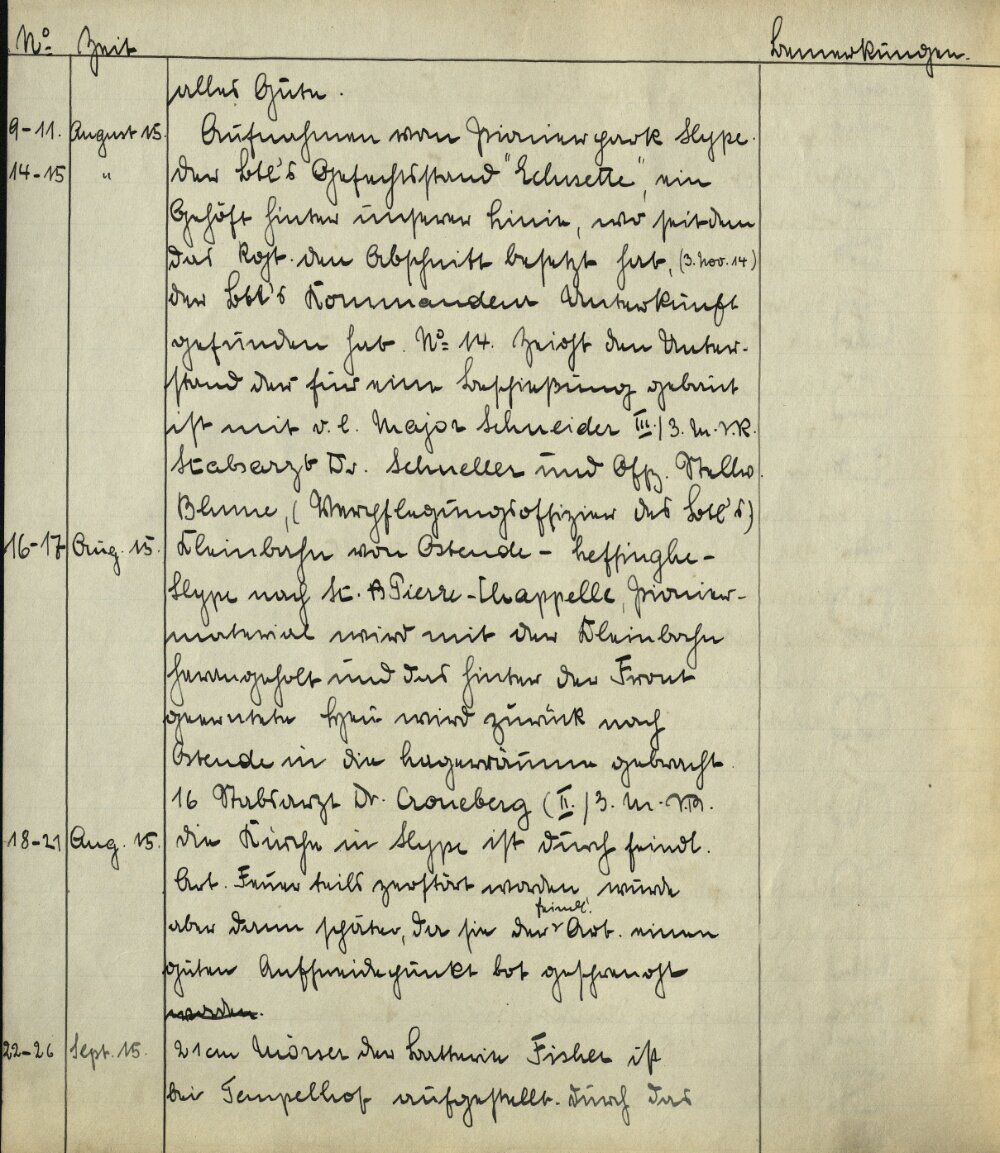 No Zeit Bemerkungen.
alles Gute.
9-11. August 15. Aufnahmen von Pionierpark Slype.
14-15 " der Btl's Gefechtsstand "Eclusette", ein
Gehöft hinter unserer Linie, wo seitdem
das Rgt. den Abschnitt besetzt hat, (3. Nov. 14)
der Btl's Kommandeur Unterkunft
gefunden hat. No 14. Zeigt den Unter-
stand der für eine Beschießung gebaut
ist mit v. l. Major Schneider III./3. M.I.R.
Stabsarzt Dr. Schneller und Offz. Stellv.
Blume, (Verpflegungsoffizier des Btl's)
16-17 Aug. 15. Kleinbahn von Ostende - Leffinghe -
Slype nach St. Pierre-Chappelle, Pionier-
material wird mit der Kleinbahn
herangeholt und das hinter der Front
geerntete Heu wird zurück nach
Ostende in die Lagerräume gebracht.
16 Stabsarzt Dr. Croneberg (II./3. M.I.R.
18-21 Aug. 15. die Kirche in Slype ist durch feindl.
Art. Feuer teils zerstört worden, wurde
aber dann später, da sie der feindl. Art. einen
guten Anschneidepunkt bot gesprengt
worden.
22-26 Sept. 15. 21cm Mörser der Batterie Fisher ist
bei Tempelhof aufgestellt. durch das